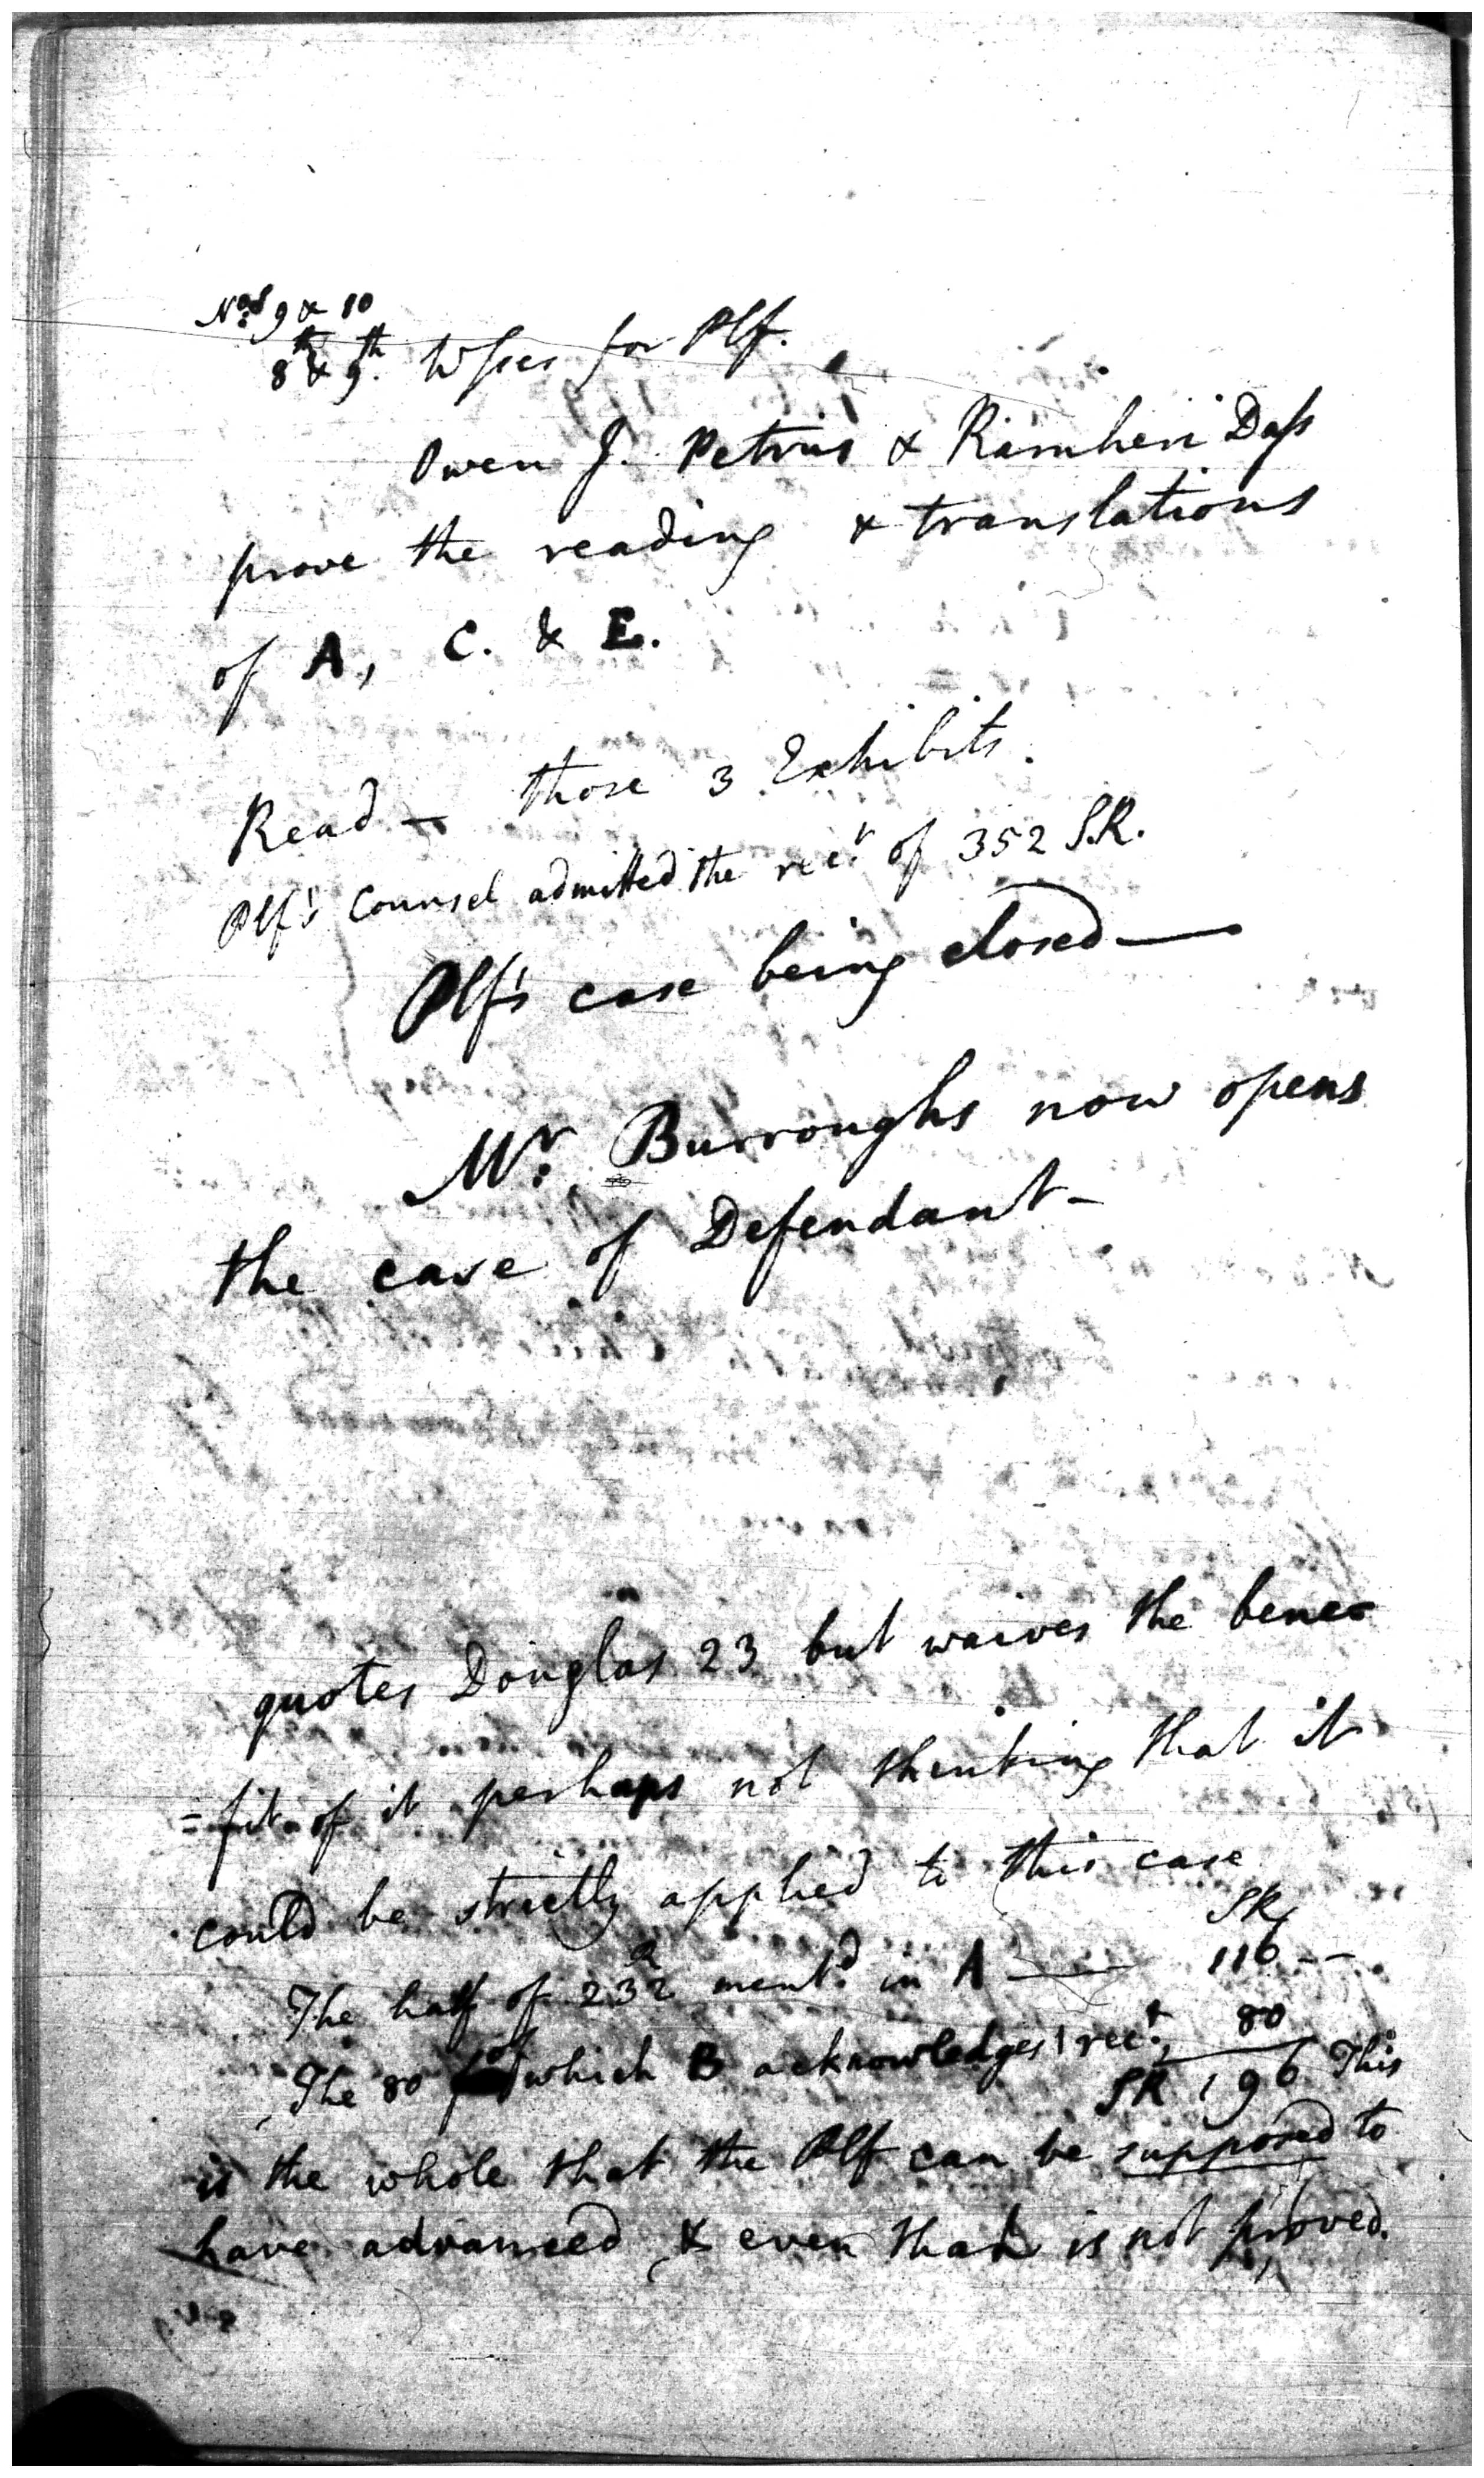 Nos. 9 & 10
8th & 9th. Wsses for Plf.
Owen J. Petrus & Ramheri Dass
prove the reading & translations
of A, C. & E.
Read — those 3 Exhibits.
Plf's Counsel admitted the rect. of 352 S.R.
Plf's case being closed —
Mr. Burroughs now opens
the case of Defendant —
quotes Douglas 23 but waives the bene=
=fit of it perhaps not thinking that it
could be strictly applied to this case
SR
The half of 232 mentd. in A — 116 - -
The 80 of which B acknowledges rect. 80
SR 196 This
is the whole that the Plf can be supposed to
have advanced & even that is not proved.